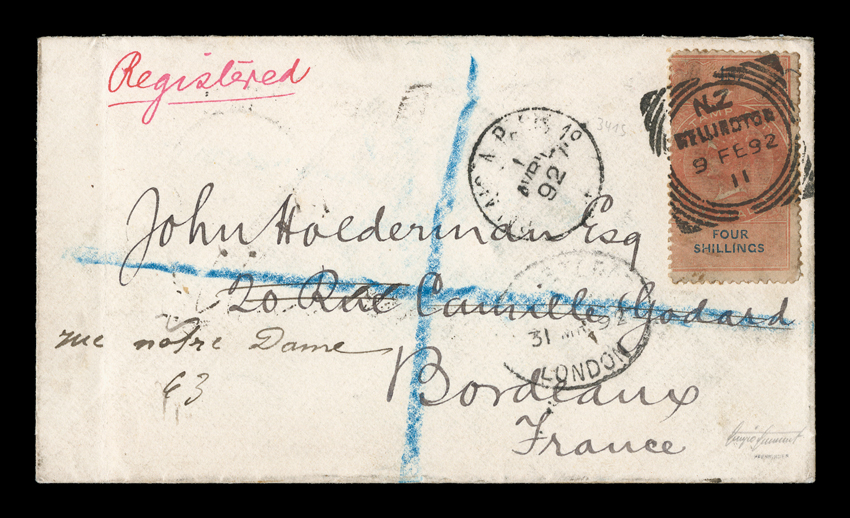 Registered
N.Z
WELLINGTON
9 FE 92
11
FOUR
SHILLINGS
PARIS
1
AVRIL
92
3415
John Holderman Esq
20 Rue Camille Godard
31 MR 92
LONDON
rue notre Dame
63
Bordeaux
France